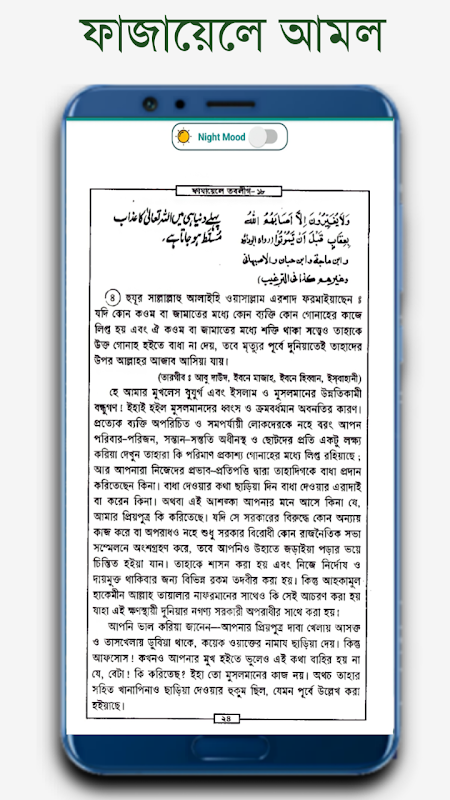 ফাজায়েলে আমল
Night Mood
ফাযায়েলে তবলীগ- ১৮
وَلَا يُغَيِّرُونَ إِلَّا أَصَابَهُمُ اللهُ
بِعِقَابٍ قَبْلَ أَنْ يَمُوتُوا (رواه ابوداؤد
وابن ماجة وابن حبان والاصبهانى
وغيرهم كذا فى الترغيب)
پہلے دنیا ہی میں اللہ تعالیٰ کا عذاب
مسلط ہو جاتا ہے۔
৪ হুযূর সাল্লাল্লাহু আলাইহি ওয়াসাল্লাম এরশাদ ফরমাইয়াছেন ঃ
যদি কোন কওম বা জামাতের মধ্যে কোন ব্যক্তি কোন গোনাহের কাজে
লিপ্ত হয় এবং ঐ কওম বা জামাতের মধ্যে শক্তি থাকা সত্বেও তাহাকে
উক্ত গোনাহ হইতে বাধা না দেয়, তবে মৃত্যুর পূর্বে দুনিয়াতেই তাহাদের
উপর আল্লাহর আজাব আসিয়া যায়।
(তারগীব ঃ আবু দাউদ, ইবনে মাজাহ, ইবনে হিব্বান, ইস্‌বাহানী)
হে আমার মুখলেস বুযুর্গ এবং ইসলাম ও মুসলমানের উন্নতিকামী
বন্ধুগণ! ইহাই হইল মুসলমানদের ধ্বংস ও ক্রমবর্ধমান অবনতির কারণ।
প্রত্যেক ব্যক্তি অপরিচিত ও সমপর্যায়ী লোকদেরকে নহে বরং আপন
পরিবার-পরিজন, সন্তান-সন্ততি অধীনস্থ ও ছোটদের প্রতি একটু লক্ষ্য
করিয়া দেখুন তাহারা কি পরিমাণ প্রকাশ্য গোনাহের মধ্যে লিপ্ত রহিয়াছে ;
আর আপনারা নিজেদের প্রভাব-প্রতিপত্তি দ্বারা তাহাদিগকে বাধা প্রদান
করিতেছেন কিনা। বাধা দেওয়ার কথা ছাড়িয়া দিন বাধা দেওয়ার এরাদাই
বা করেন কিনা। অথবা এই আশঙ্কা আপনার মনে আসে কিনা যে,
আমার প্রিয়পুত্র কি করিতেছে। যদি সে সরকারের বিরুদ্ধে কোন অন্যায়
কাজ করে বা অপরাধও নহে শুধু সরকার বিরোধী কোন রাজনৈতিক সভা
সম্মেলনে অংশগ্রহণ করে, তবে আপনিও উহাতে জড়াইয়া পড়ার ভয়ে
চিন্তিত হইয়া যান। তাহাকে শাসন করা হয় এবং নিজে নির্দোষ ও
দায়মুক্ত থাকিবার জন্য বিভিন্ন রকম তদবীর করা হয়। কিন্তু আহকামুল
হাকেমীন আল্লাহ তায়ালার নাফরমানের সাথেও কি সেই আচরণ করা হয়
যাহা এই ক্ষণস্থায়ী দুনিয়ার নগণ্য সরকারী অপরাধীর সাথে করা হয়।
আপনি ভাল করিয়া জানেন—আপনার প্রিয়পুত্র দাবা খেলায় আসক্ত
ও তাসখেলায় ডুবিয়া থাকে, কয়েক ওয়াক্তের নামায ছাড়িয়া দেয়। কিন্তু
আফসোস! কখনও আপনার মুখ হইতে ভুলেও এই কথা বাহির হয় না
যে, বেটা! কি করিতেছ? ইহা তো মুসলমানের কাজ নয়। অথচ তাহার
সহিত খানাপিনাও ছাড়িয়া দেওয়ার হুকুম ছিল, যেমন পূর্বে উল্লেখ করা
হইয়াছে।
২৪